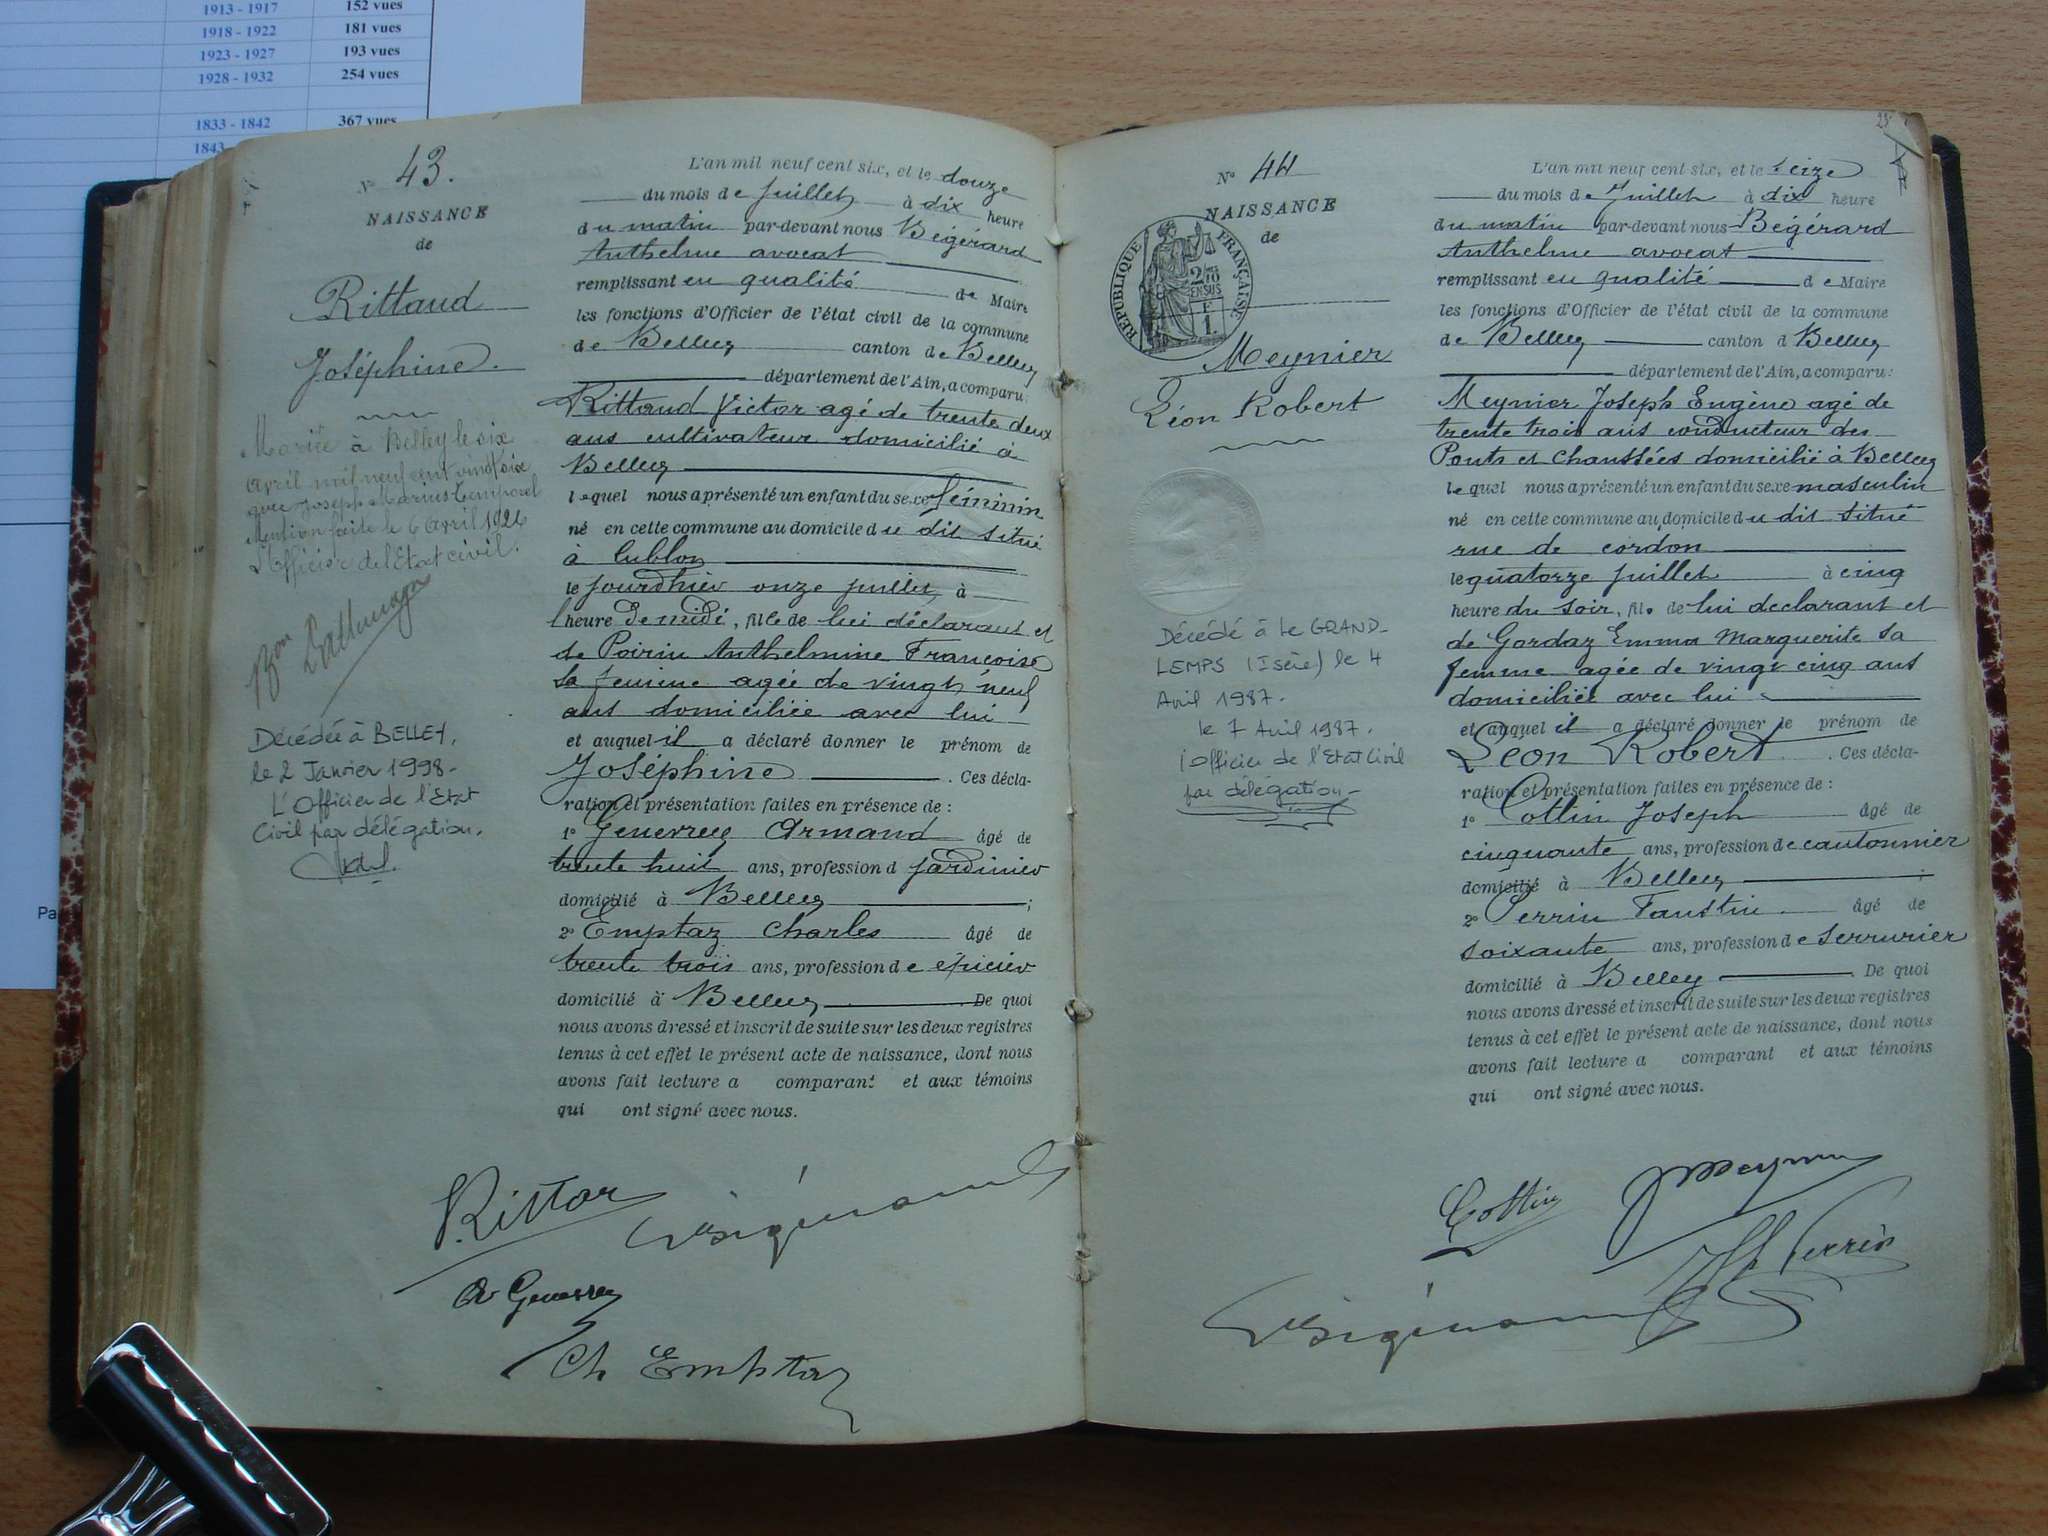 1913 - 1917 152 vues
1918 - 1922 181 vues
1923 - 1927 193 vues
1928 - 1932 254 vues
1833 - 1842 367 vues
1843
Pa
N° 43.
NAISSANCE
de
Rittaud
Joséphine.
Mariée à Belley le six
Avril mil neuf cent vingt six
avec Joseph Marius Temporel
Mention faite le 6 Avril 1926
L'Officier de l'Etat civil.
Décédée à BELLEY,
le 2 Janvier 1998-
L'Officier de l'Etat
Civil par délégation.
L'an mil neuf cent six, et le douze
du mois de Juillet à dix heure
du matin par-devant nous Bégérard
Anthelme avocat
remplissant en qualité de Maire
les fonctions d'Officier de l'état civil de la commune
de Belley canton de Belley
département de l'Ain, a comparu:
Rittaud Victor agé de trente deux
ans cultivateur domicilié à
Belley
lequel nous a présenté un enfant du sexe féminin
né en cette commune au domicile du dit situé
à Cublon
le jourdhier onze juillet à
l'heure de midi, fille de lui déclarant et
de Poirin Anthelmine Françoise
sa femme agée de vingt neuf
ans domiciliée avec lui
et auquel il a déclaré donner le prénom de
Joséphine . Ces décla-
ration et présentation faites en présence de :
1° Genevrey Armand âgé de
trente huit ans, profession d jardinier
domicilié à Belley ;
2° Emptaz Charles âgé de
trente trois ans, profession de épicier
domicilié à Belley . De quoi
nous avons dressé et inscrit de suite sur les deux registres
tenus à cet effet le présent acte de naissance, dont nous
avons fait lecture a comparant et aux témoins
qui ont signé avec nous.
V. Rittor
A Genevrey
Ch Emptaz
25
N° 44
NAISSANCE
de
REPUBLIQUE FRANÇAISE
2/10
EN SUS
F
1.
Meynier
Léon Robert
Décédé à Le GRAND-
LEMPS (Isère) le 4
Avril 1987.
le 7 Avril 1987.
l'Officier de l'Etat Civil
par délégation-
L'an mil neuf cent six, et le seize
du mois de Juillet à dix heure
du matin par-devant nous Bégérard
Anthelme avocat
remplissant en qualité de Maire
les fonctions d'Officier de l'état civil de la commune
de Belley canton d Belley
département de l'Ain, a comparu:
Meynier Joseph Eugène agé de
trente trois ans conducteur des
Ponts et Chaussées domicilié à Belley
lequel nous a présenté un enfant du sexe masculin
né en cette commune au domicile du dit situé
rue de cordon
le quatorze juillet à cinq
heure du soir, fils de lui declarant et
de Gordaz Emma Marguerite sa
femme agée de vingt cinq ans
domiciliée avec lui
et auquel il a déclaré donner le prénom de
Léon Robert . Ces décla-
ration et présentation faites en présence de :
1° Cottin Joseph âgé de
cinquante ans, profession de cantonnier
domicilié à Belley ;
2° Perrin Faustin âgé de
soixante ans, profession de serrurier
domicilié à Belley . De quoi
nous avons dressé et inscrit de suite sur les deux registres
tenus à cet effet le présent acte de naissance, dont nous
avons fait lecture a comparant et aux témoins
qui ont signé avec nous.
Cottin
J Meynier
Perrin